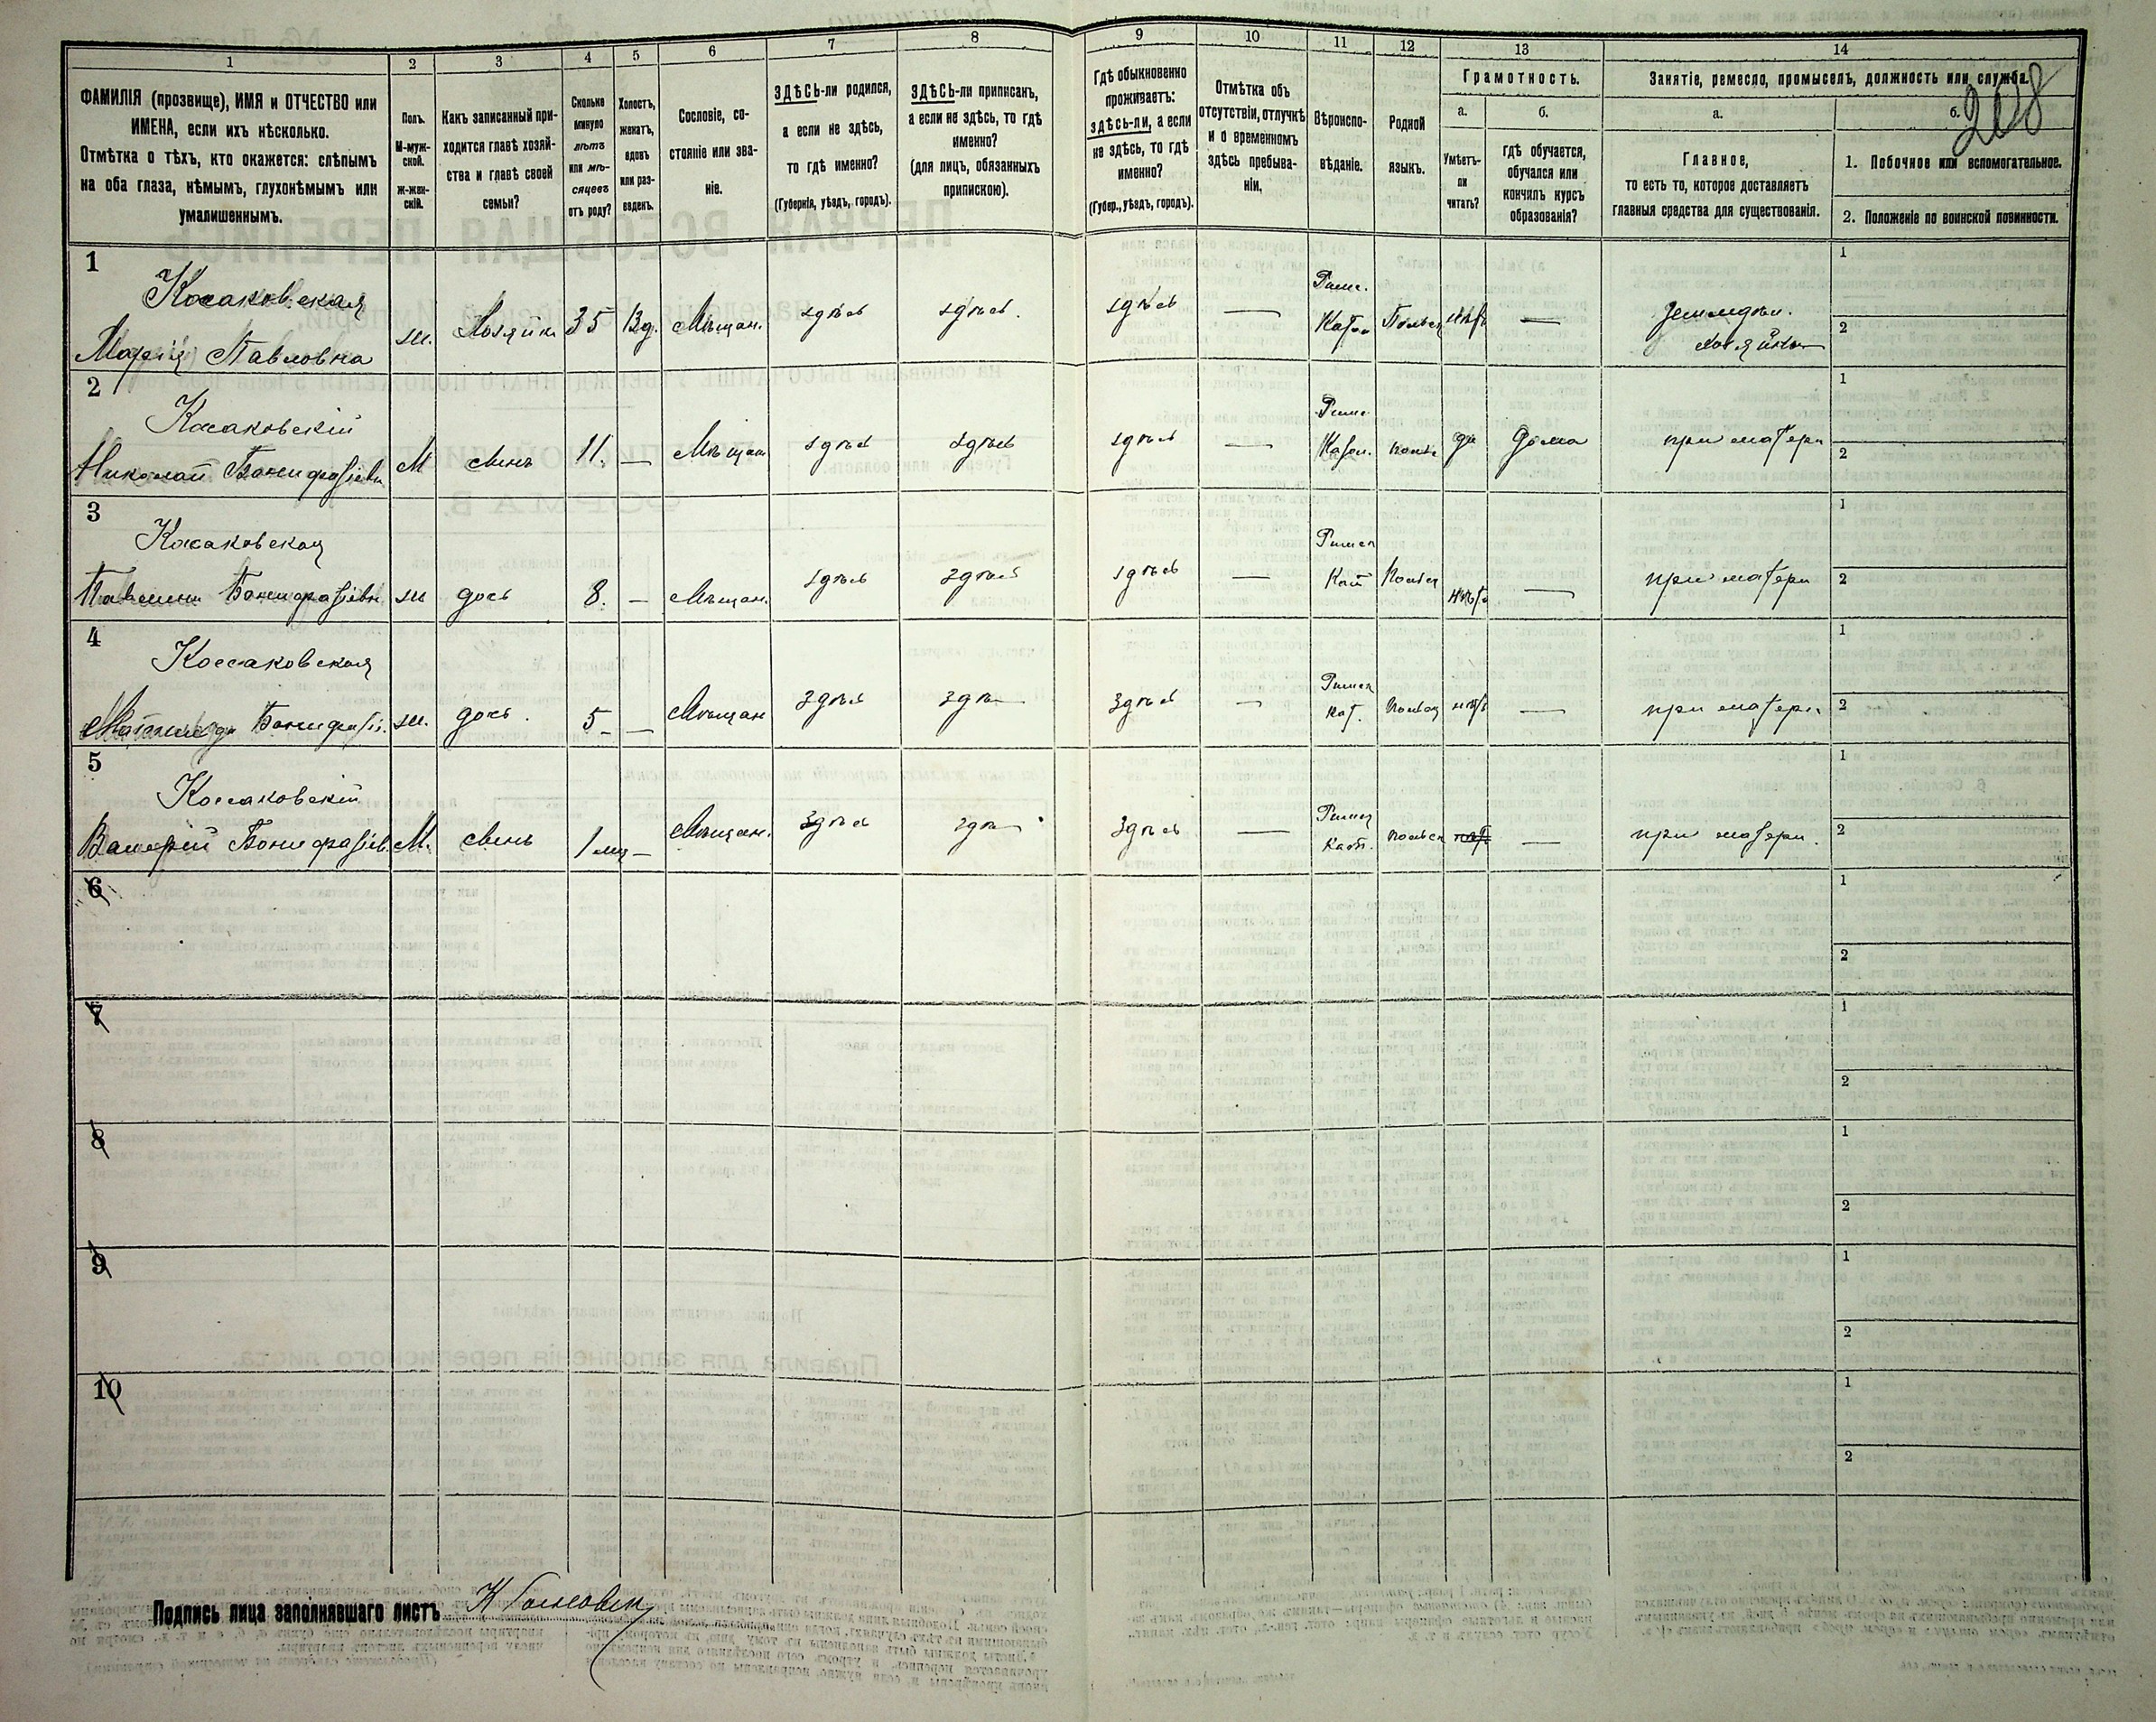 208
1 2 3 4 5 6 7 8 9 10 11 12 13 14
ФАМИЛІЯ (прозвище), ИМЯ и ОТЧЕСТВО или
ИМЕНА, если ихъ нѣсколько.
Отмѣтка о тѣхъ, кто окажется: слѣпымъ
на оба глаза, нѣмымъ, глухонѣмымъ или
умалишеннымъ.
Полъ.
М-муж-
ской.
Ж-жен-
скій.
Какъ записанный при-
ходится главѣ хозяй-
ства и главѣ своей
семьи?
Сколько
минуло
лѣтъ
или мѣ-
сяцевъ
отъ роду?
Холостъ,
женатъ,
вдовъ
или раз-
веденъ.
Сословіе, со-
стояніе или зва-
ніе.
ЗДѢСЬ-ли родился,
а если не здѣсь,
то гдѣ именно?
(Губернія, уѣздъ, городъ).
ЗДѢСЬ-ли приписанъ,
а если не здѣсь, то гдѣ
именно?
(для лицъ, обязанныхъ
припискою).
Гдѣ обыкновенно
проживаетъ:
здѣсь-ли, а если
не здѣсь, то гдѣ
именно?
(Губер., уѣздъ, городъ).
Отмѣтка объ
отсутствіи, отлучкѣ
и о временномъ
здѣсь пребыва-
ніи.
Вѣроиспо-
вѣданіе.
Родной
языкъ.
Грамотность.
а.
Умѣетъ-
ли
читать?
б.
гдѣ обучается,
обучался или
кончилъ курсъ
образованія?
Занятіе, ремесло, промыселъ, должность или служба.
а.
Главное,
то есть то, которое доставляетъ
главныя средства для существованія.
б.
1. Побочное или вспомогательное.
2. Положеніе по воинской повинности.
1
Косаковская
Марія Павловна
ж. Хозяйка 35 Вд. Мѣщан. здѣсь здѣсь. здѣсь —
Римс.
Катол Польск нѣтъ —
Земледѣл.
хозяйка
1
2
2
Косаковскій
Николай Бонифатіевъ
М сынъ 11. — Мѣщан здѣсь здѣсь здѣсь —
Римс.
Катол. польс да дома при матери
1
2
3
Косаковская
Павлина Бонифатіевн
ж дочь 8. — Мѣщан. здѣсь здѣсь здѣсь —
Римск
Кат Польск нѣтъ — при матери
1
2
4
Коссаковская
Бонифатіе.
ж. дочь. 5 — Мѣщан здѣсь здѣ здѣсь —
Римск
кат. польск нѣтъ — при матери
1
2
5
Коссаковскій
Валерій Бонифатіев.
М. сынъ 1 мц — Мѣщан. здѣсь здѣ здѣсь —
Римск
кат. польск нѣт — при матери.
1
2
6
1
2
7
1
2
8
1
2
9
1
2
10
1
2
Подпись лица заполнявшаго листъ